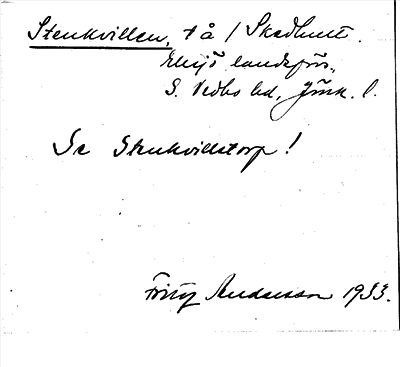 Stenkvillen, t å / Skedhult.
Eksjö landsförs.,
S. Vedbo hd, Jönk. l.
Se Stenkvillstorp!
Fritz Andersson 1933.